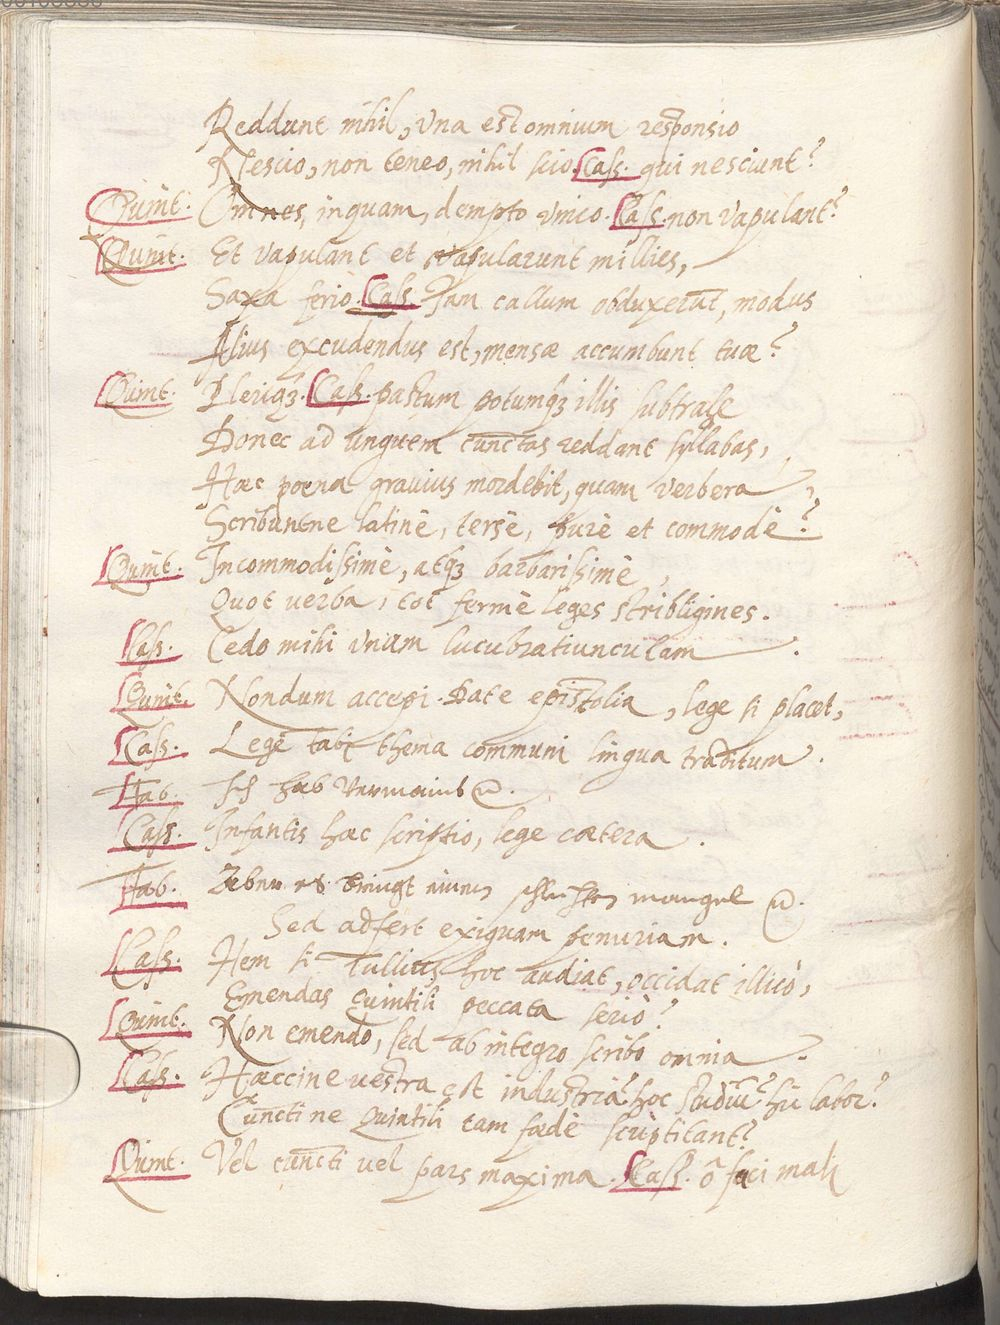 Reddunt nihil, Vna est omnium responsio
Nescio, non teneo, nihil scio. Cass. qui nesciunt?
Quint. Omnes, inquam, dempto vnico. Cass. non vapulant?
Quint. Et vapulant et vapularunt millies,
Saxa ferio. Cass. Jam callum obduxerūt, modus
Alius excudendus est, mensæ accumbunt tuæ?
Quint. Pleriqꝫ. Cass. pastum potumqꝫ illis subtrahe
Donec ad unguem cunctas reddant syllabas,
Hæc poena grauius mordebit, quam verbera,
Scribuntne latinè, tersè, purè et commodè?
Quint. Incommodissimè, atqꝫ barbarissimè,
Quot verba, tot fermè leges stribligines.
Cass. Cedo mihi vnam lucubratiunculam.
Quint. Nondum accepi. Date epistolia, lege si placet,
Cass. Lege thema communi lingua traditum.
Fab. Ich hab
Cass. Infantis hæc scriptio, lege cætera.
Fab. bringt mangel
Sed adfert exiguam penuriam.
Cass. Hem si Tullius hoc audiat, occidat illicò,
Emendas Quintili peccata seriò?
Quint. Non emendo, sed ab integro scribo omnia.
Cass. Hæccine vestra est industria? hoc studiū? hic labor?
Cunctine Quintili tam fœdè scriptitant?
Quint. Vel cuncti vel pars maxima. Cass. ô fuci mali